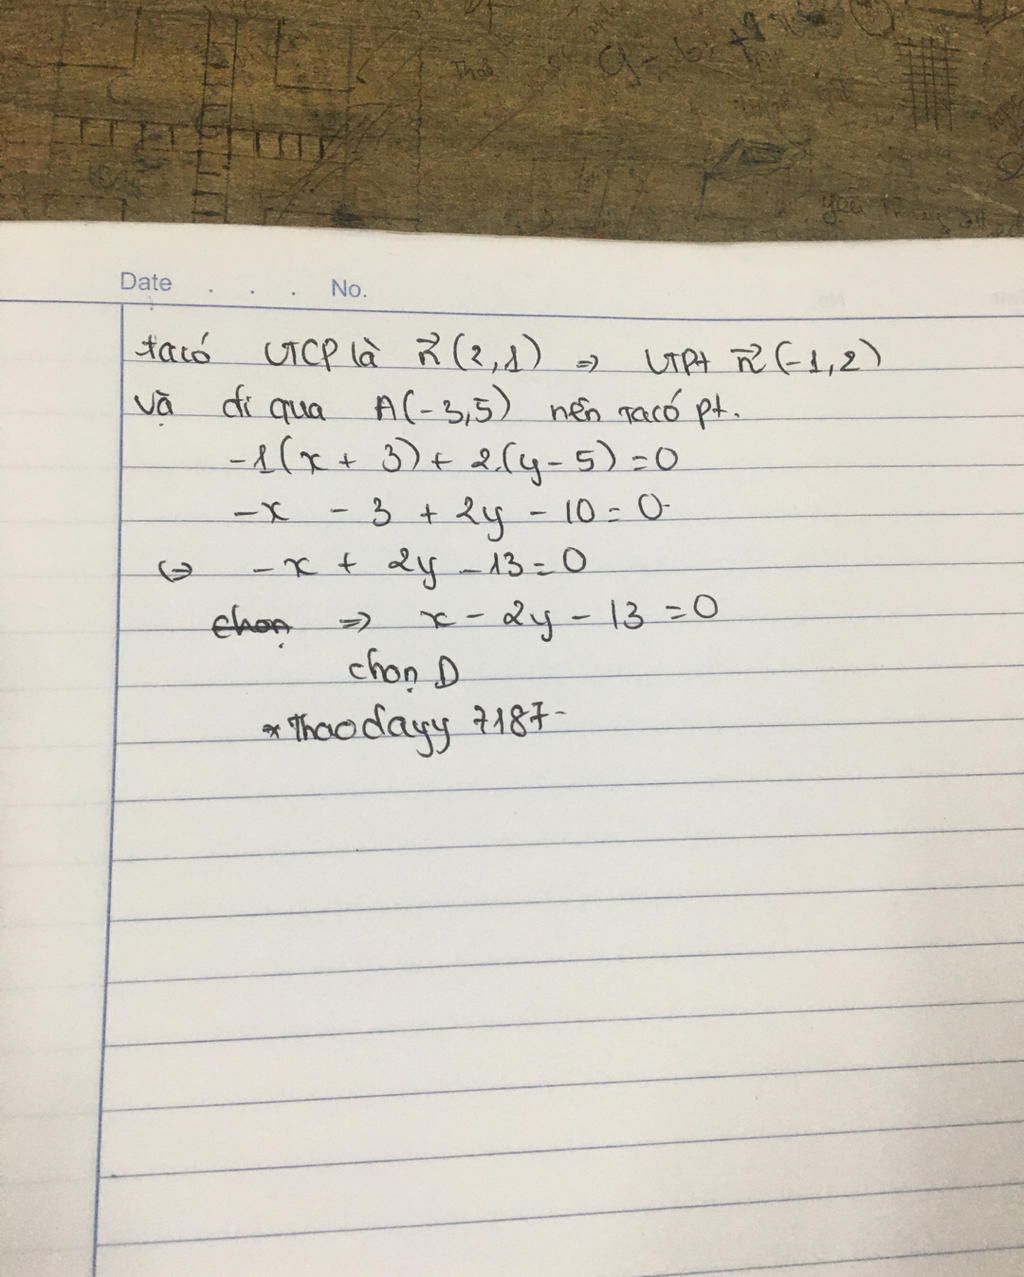 Date . . . No.
ta có VTCP là n⃗ (2,1) => VTPT n⃗ (-1,2)
và đi qua A(-3,5) nên ta có pt.
-1(x + 3) + 2.(y - 5) = 0
-x - 3 + 2y - 10 = 0
<=> -x + 2y - 13 = 0
chọn => x - 2y - 13 = 0
chọn D
*Thaodayy 7187-